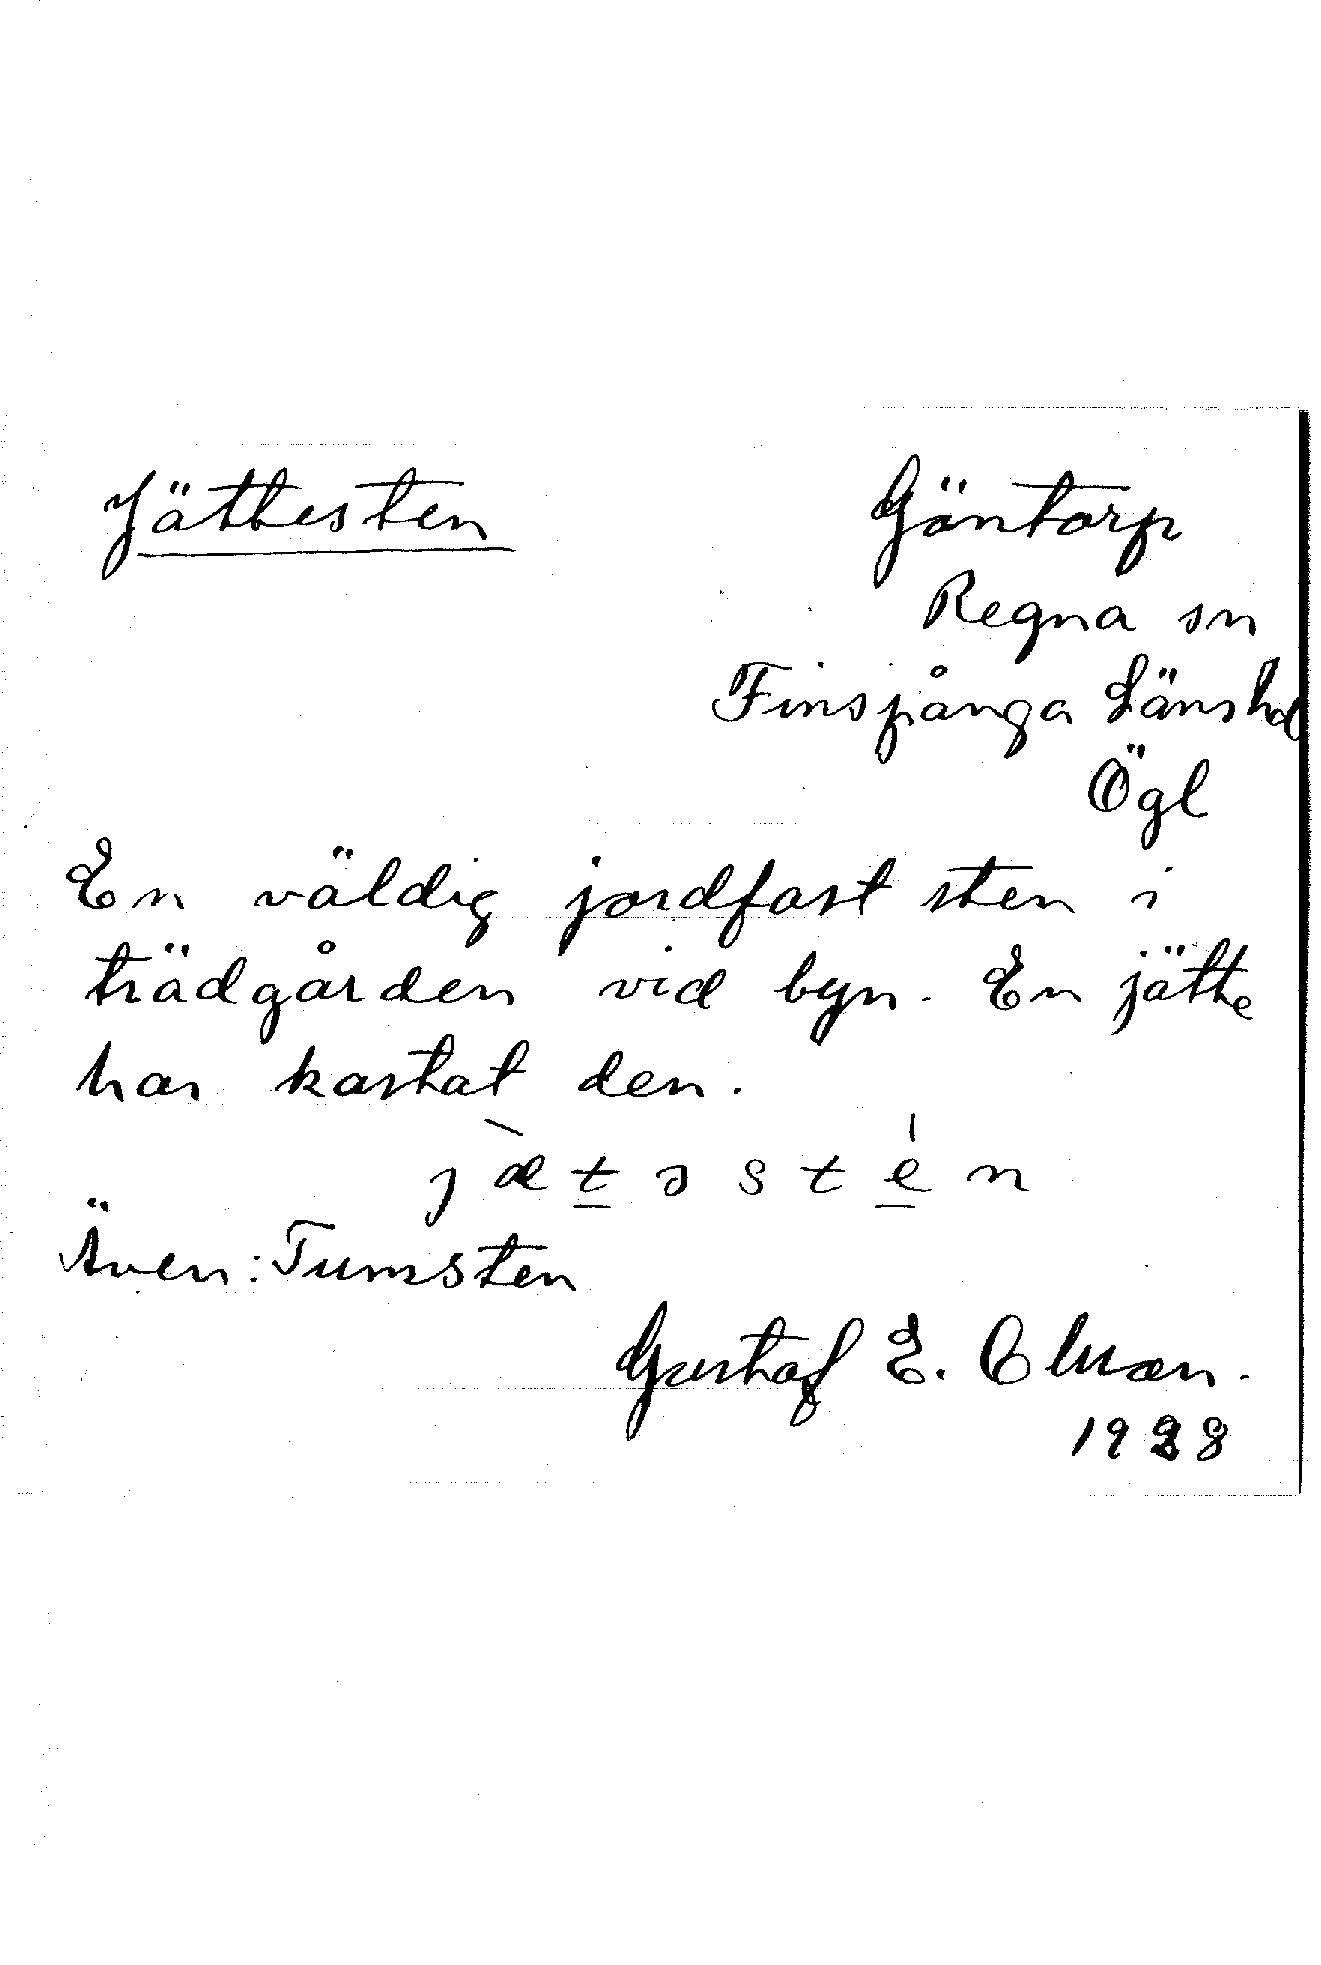 Jättesten
Göntorp
Regna sn
Finspånga Länshd
Ögl
En väldig jordfast sten i
trädgården vid byn. En jätte
har kastat den.
j æ̀ t̲ ə s t é̲ n
Även: Tumsten
Gustaf E.
1928